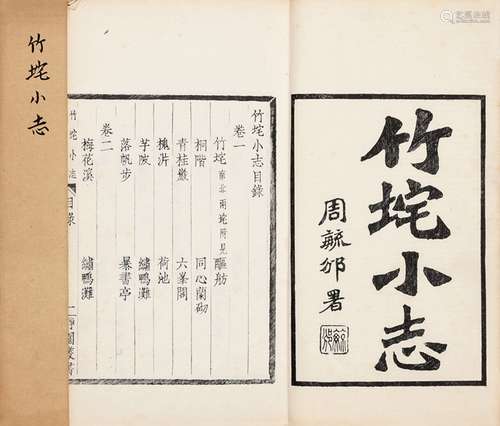 竹垞小志
竹垞小志
周毓邠署
竹垞小志目錄
卷一
竹垞 南北兩垞附見 醧舫
桐階 同心蘭砌
青桂巖 六峯閣
槐沜 荷池
芋陂 繡鴨灘
落帆步 暴書亭
卷二
梅花溪 繡鴨灘
竹垞小志
目錄
一 靜園叢書